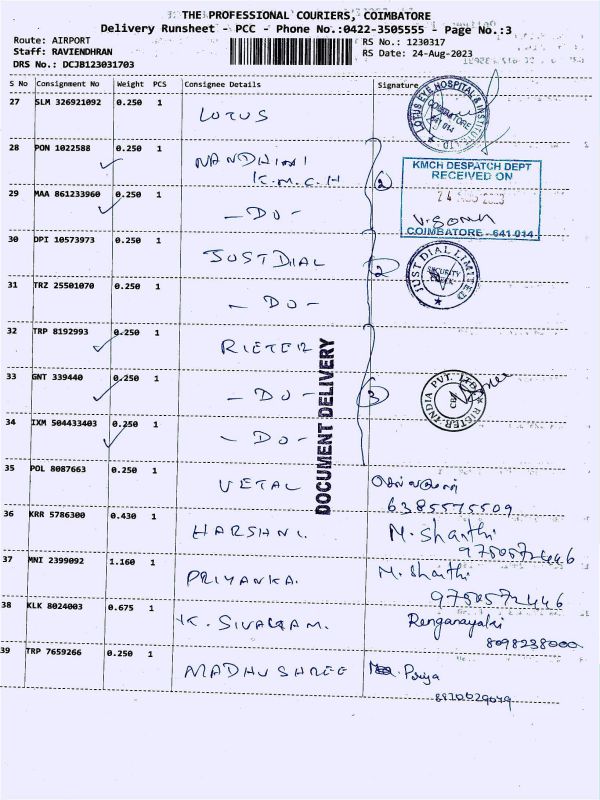 THE PROFESSIONAL COURIERS, COIMBATORE
Delivery Runsheet - PCC - Phone No.:0422-3505555 - Page No.:3
Route: AIRPORT
RS No.: 1230317
Staff: RAVIENDHRAN
RS Date: 24-Aug-2023
DRS No.: DCJB123031703
S No Consignment No Weight PCS Consignee Details Signature
27 SLM 326921092 0.250 1 LOTUS
LOTUS EYE HOSPITAL & INSTITUTE LTD. COIMBATORE 641 014
28 PON 1022588 0.250 1 NANDHINI
K.M.C.H
2
KMCH DESPATCH DEPT
RECEIVED ON
COIMBATORE - 641 014
29 MAA 861233960 0.250 1 - DO -
30 DPI 10573973 0.250 1 JUSTDIAL
2
JUST DIAL LIMITED SECURITY
31 TRZ 25501070 0.250 1 - DO -
32 TRP 8192993 0.250 1 RIETER
33 GNT 339440 0.250 1 - DO -
3
RIETER INDIA PVT. LTD.
34 IXM 504433403 0.250 1 - DO -
DOCUMENT DELIVERY
35 POL 8087663 0.250 1 VETAL
6385575509
36 KRR 5786300 0.430 1 HARSHNI. M. Shanthi
9750572446
37 MNI 2399092 1.160 1 PRIYANKA. M. Shanthi
9750572446
38 KLK 8024003 0.675 1 K. SIVAGAM. Renganayaki
8098238000
39 TRP 7659266 0.250 1 MADHUSHREE Priya